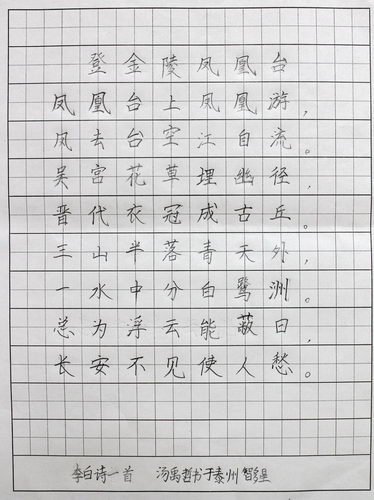 登金陵凤凰台
凤凰台上凤凰游，
凤去台空江自流。
吴宫花草埋幽径，
晋代衣冠成古丘。
三山半落青天外，
一水中分白鹭洲。
总为浮云能蔽日，
长安不见使人愁。
李白诗一首 汤禹哲书于泰州智多星